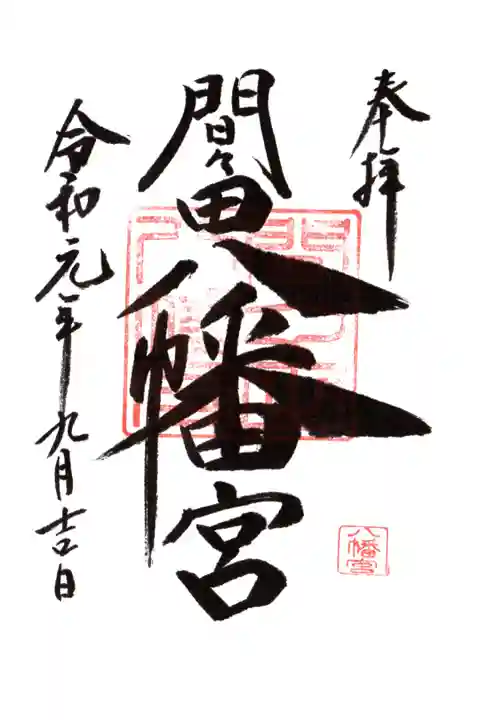 奉拝
間々田八幡宮
令和元年九月吉日
八幡宮